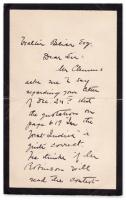 Walter Bliss Esq.
Dear Sir:
Mr Clemens
asks me to say
regarding your letter
of Dec. 24th that
the quotation on
page 619 in the
"Joat Indeix" is
quite correct.
He thinks if Mr
Robinson will
read the context